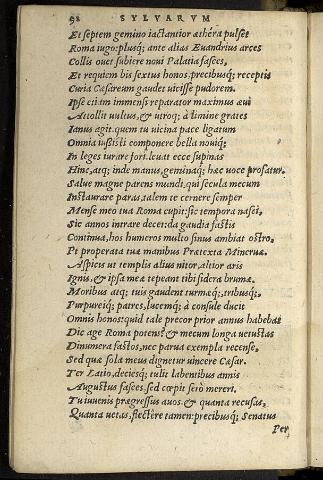 98 SYLVARVM
Et septem gemino iactantior æthera pulset
Roma iugo: plusq; ante alias Euandrius arces
Collis ouet subiere noui Palatia fasces,
Et requiem bis sextus honos, precibusq; receptis
Curia Cæsareum gaudet uicisse pudorem.
Ipse etiam immensi reparator maximus æui
Attollit uultus, & utroq; à limine grates
Ianus agit. quem tu uicina pace ligatum
Omnia iussisti componere bella nouiq;
In leges iurare fori. leuat ecce supinas
Hinc, atq; inde manus, geminaq; hæc uoce profatur.
Salue magne parens mundi, qui secula mecum
Instaurare paras, talem te cernere semper
Mense meo tua Roma cupit: sic tempora nasci,
Sic annos intrare decet: da gaudia fastis
Continua, hos humeros multo sinus ambiat ostro,
Et properata tuæ manibus Prætexta Mineruæ.
Aspicis ut templis alius nitor, altior aris
Ignis, & ipsa meæ tepeant tibi sidera brumæ.
Moribus atq; tuis gaudent turmæq;, tribusq;,
Purpureiq; patres, lucemq; à consule ducit
Omnis honos: quid tale precor prior annus habebat
Dic age Roma potens & mecum longa uetustas
Dinumera fastos, nec parua exempla recense,
Sed quæ sola meus dignetur uincere Cæsar.
Ter Latio, deciesq; tulit labentibus annis
Augustus fasces, sed cœpit serò mereri.
Tu iuuenis prægressus auos. & quanta recusas,
Quanta uetas, flectêre tamen: precibusq; Senatus
Per